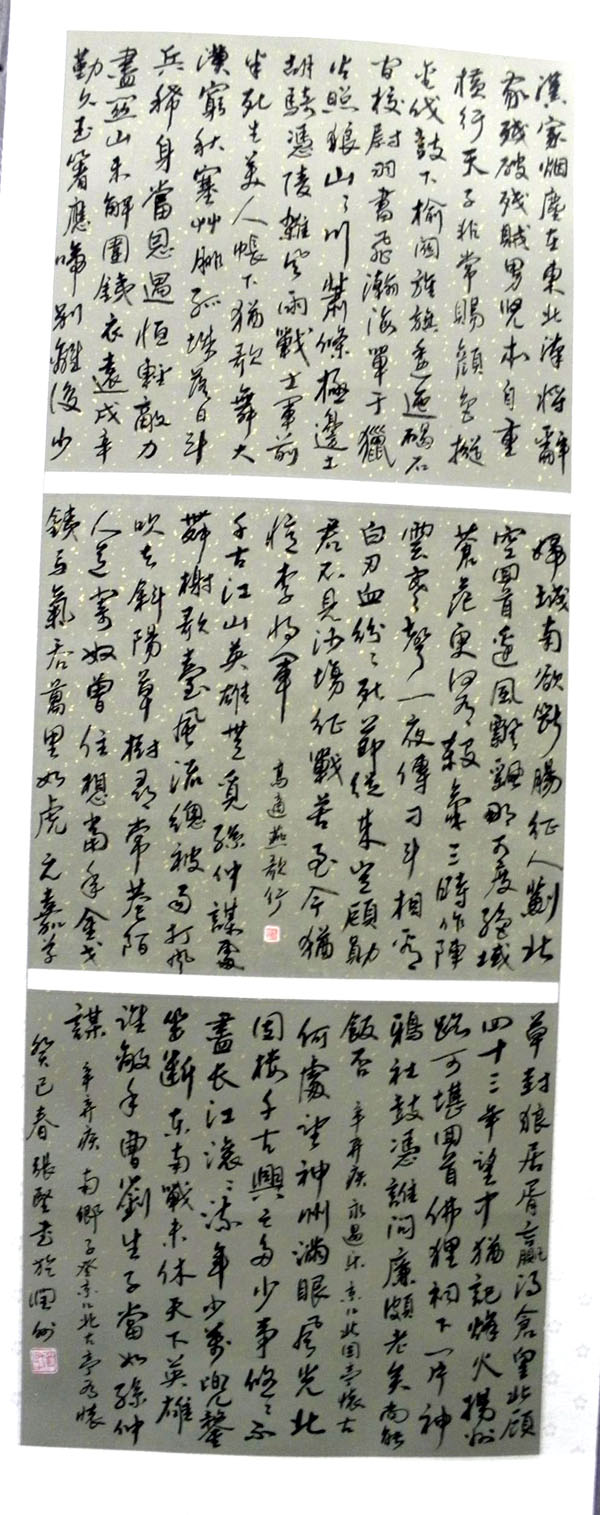 漢家烟塵在東北漢將辭
家殘破殘賊男兒本自重
橫行天子非常賜顏色摐
金伐鼓下榆關旌旗逶迤碣石
間校尉羽書飛瀚海單于獵
火照狼山山川蕭條極邊土
胡騎憑陵雜風雨戰士軍前
半死生美人帳下猶歌舞大
漠窮秋塞草腓孤城落日鬥
兵稀身當恩遇恒輕敵力
盡關山未解圍鐵衣遠戍辛
勤久玉箸應啼別離後少
婦城南欲斷腸征人薊北
空回首邊風飄飄那可度絕域
蒼茫更何有殺氣三時作陣
雲寒聲一夜傳刁斗相看
白刃血紛紛死節從來豈顧勛
君不見沙場征戰苦至今猶
憶李將軍 高適燕歌行
千古江山英雄無覓孫仲謀處
舞榭歌臺風流總被雨打風
吹去斜陽草樹尋常巷陌
人道寄奴曾住想當年金戈
鐵馬氣吞萬里如虎元嘉草
草封狼居胥贏得倉皇北顧
四十三年望中猶記烽火揚州
路可堪回首佛狸祠下一片神
鴉社鼓憑誰問廉頗老矣尚能
飯否 辛弃疾永遇樂京口北固亭懷古
何處望神州滿眼風光北
固樓千古興亡多少事悠悠不
盡長江滾滾流年少萬兜鍪
坐斷東南戰未休天下英雄
誰敵手曹劉生子當如孫仲
謀 辛弃疾南鄉子登京口北固亭有懷
癸巳春張堅書於潤州